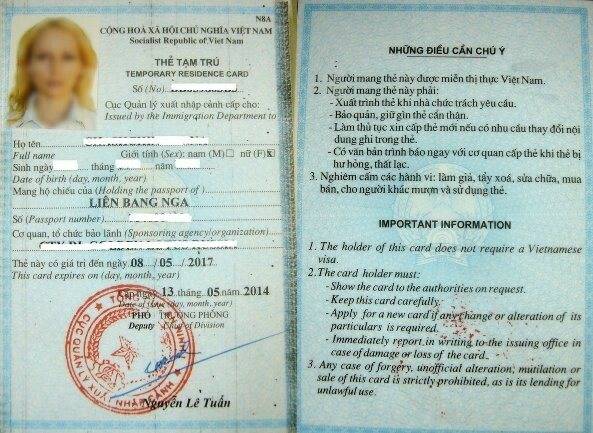 N8A
CỘNG HOÀ XÃ HỘI CHỦ NGHĨA VIỆT NAM
Socialist Republic of Viet Nam
THẺ TẠM TRÚ
TEMPORARY RESIDENCE CARD
Số (No)
Cục Quản lý xuất nhập cảnh cấp cho:
Issued by the Immigration Department to
Họ tên
Full name Giới tính (Sex): nam (M)☐ nữ (F)☒
Sinh ngày tháng năm
Date of birth (day, month, year)
Mang hộ chiếu của (Holding the passport of)
LIÊN BANG NGA
Số (Passport number)
Cơ quan, tổ chức bảo lãnh (Sponsoring agency/organization)
Thẻ này có giá trị đến ngày 08 / 05 / 2017
This card expires on (day, month, year)
Cấp ngày 13 tháng 05 năm 2014
Date of issue (day, month, year)
PHÓ TRƯỞNG PHÒNG
Deputy Chief of Division
Nguyễn Lê Tuấn
NHỮNG ĐIỀU CẦN CHÚ Ý
1. Người mang thẻ này được miễn thị thực Việt Nam.
2. Người mang thẻ này phải:
- Xuất trình thẻ khi nhà chức trách yêu cầu.
- Bảo quản, giữ gìn thẻ cẩn thận.
- Làm thủ tục xin cấp thẻ mới nếu có nhu cầu thay đổi nội
dung ghi trong thẻ.
- Có văn bản trình báo ngay với cơ quan cấp thẻ khi thẻ bị
hư hỏng, thất lạc.
3. Nghiêm cấm các hành vi: làm giả, tẩy xoá, sửa chữa, mua
bán, cho người khác mượn và sử dụng thẻ.
IMPORTANT INFORMATION
1. The holder of this card does not require a Vietnamese
visa.
2.The card holder must:
- Show the card to the authorities on request.
- Keep this card carefully.
- Apply for a new card if any change or alteration of its
particulars is required.
- Immediately report in writing to the issuing office in
case of damage or loss of the card.
3. Any case of forgery, unofficial alteration; mutilation or
sale of this card is strictly prohibited, as is its lending for
unlawful use.